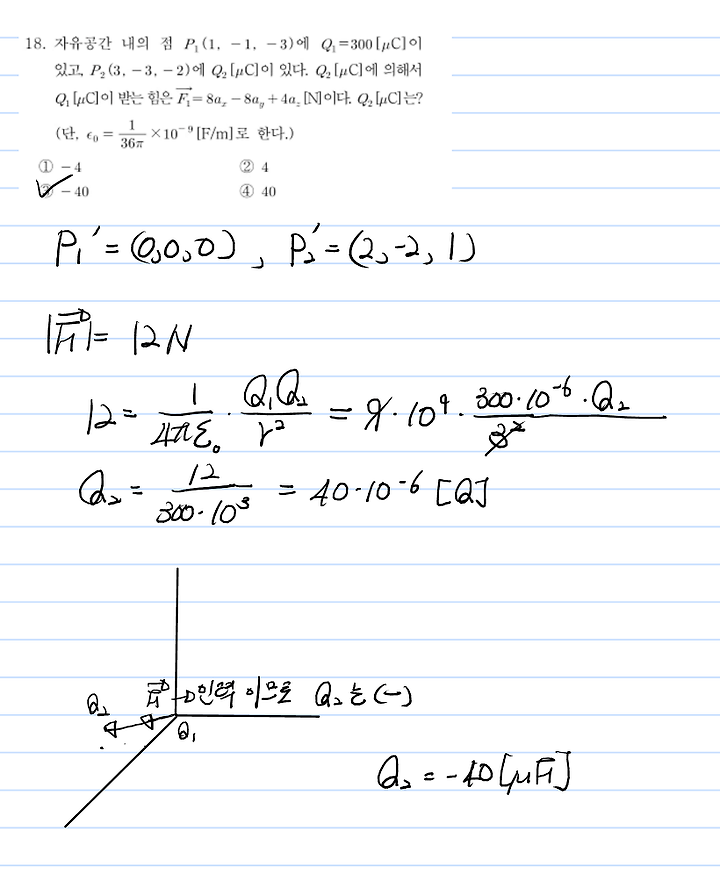 18. 자유공간 내의 점 P₁(1, -1, -3)에 Q₁=300[μC]이
있고, P₂(3, -3, -2)에 Q₂[μC]이 있다. Q₂[μC]에 의해서
Q₁[μC]이 받는 힘은 F₁→=8aₓ-8a_y+4a_z[N]이다. Q₂[μC]는?
(단, ϵ₀ = 1/36π ×10⁻⁹[F/m]로 한다.)
① -4 ② 4
③ -40 ④ 40
P₁' = (0,0,0), P₂' = (2,-2,1)
|F₁→| = 12N
12 = 1/4πε₀ · Q₁Q₂/r² = 9·10⁹ · 300·10⁻⁶·Q₂/3²
Q₂ = 12/300·10³ = 40·10⁻⁶ [Q]
Q₂ F₁→ → 인력 이므로 Q₂는 (-)
Q₁
Q₂ = -40[μF]